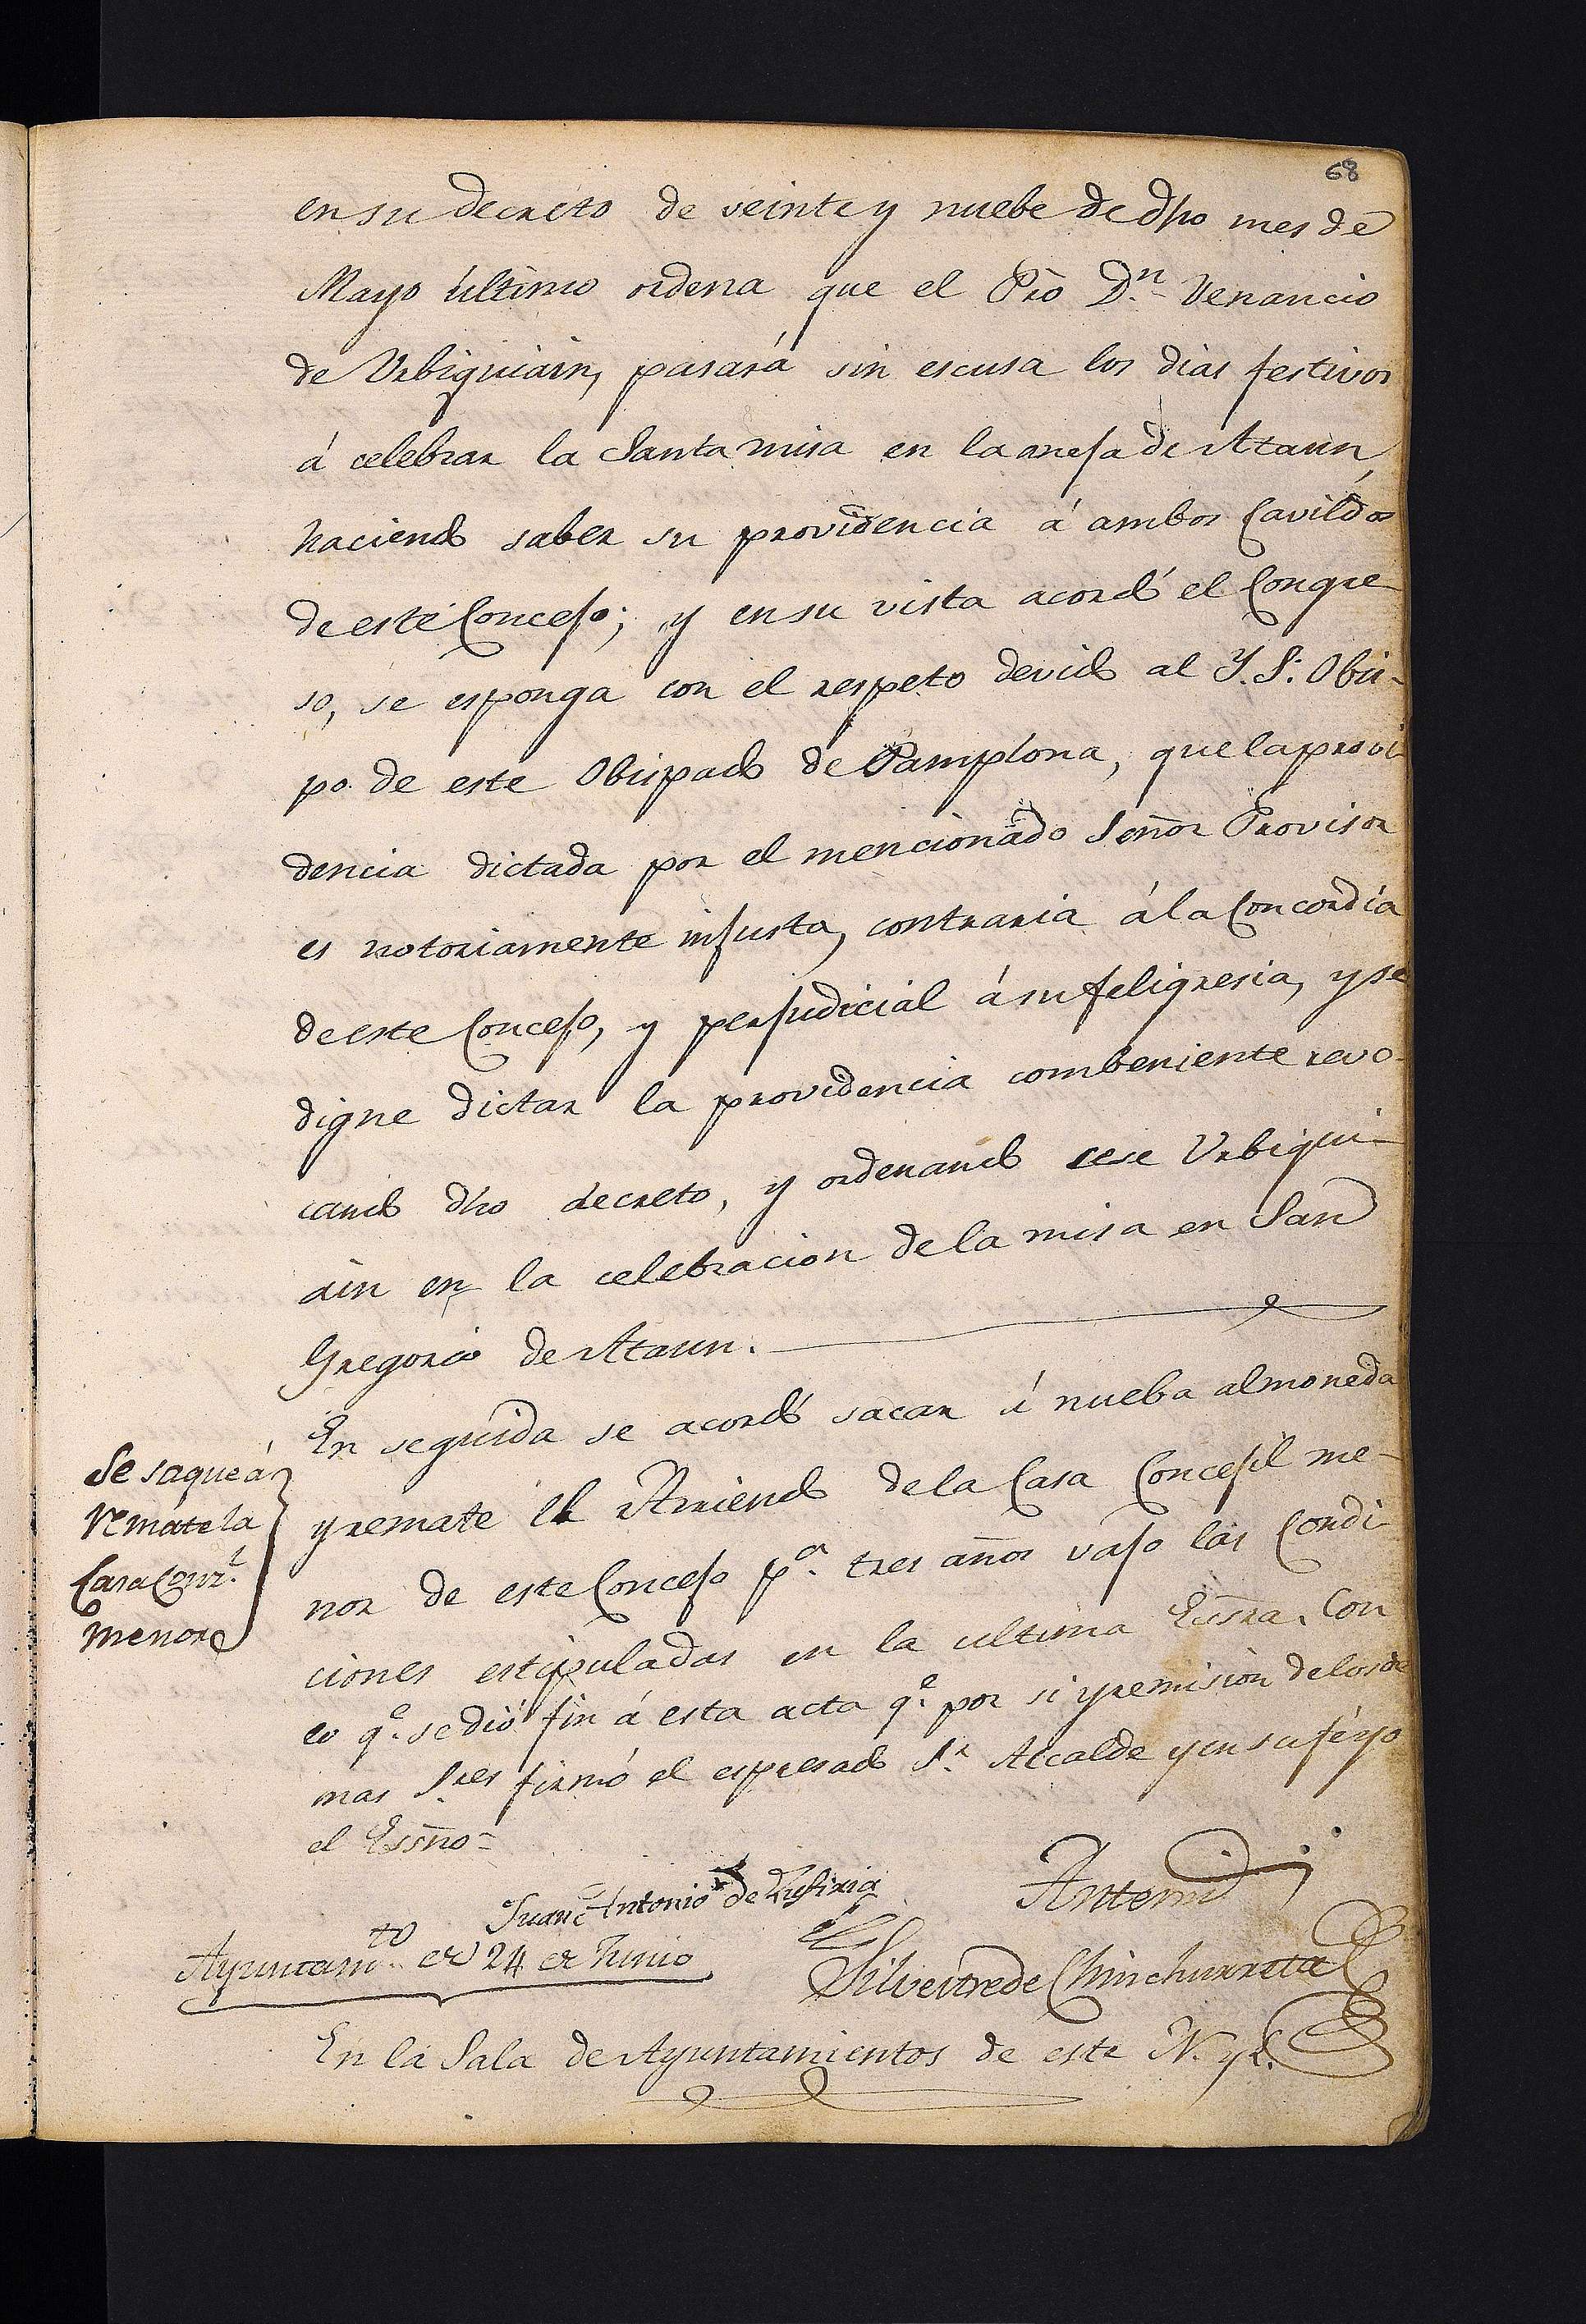 68
en su decreto de veinte y nuebe de dho mes de
Mayo último ordena que el Pro Dn. Venancio
de Urbiquiain, pasará sin escusa los dias festivos
á celebrar la Santa misa en la anesa de Ataun,
haciendo saber su providencia á ambos Cavildos
de este Concejo; y en su vista acordó el Congre
so, se esponga con el respeto devido al Y. S. Obis-
po de este Obispado de Pamplona, que la provi
dencia dictada por el mencionado Señor Provisor
es notoriamente injusta, contraria á la Concordia
de este Concejo, y perjudicial á su feligresia, y se
digne dictar la providencia combeniente revo-
cando dho decreto, y ordenando cese Urbiqui-
ain en la celebracion de la misa en San
Gregorio de Ataun.
En seguida se acordó sacar á nueba almoneda
y remate el Arriendo de la Casa Concejil me-
nor de este Concejo pa. tres años vajo las Condi
ciones estipuladas en la ultima Essra. Con
eo qe. se dió fin á esta acta qe. por si y remision de los de
mas Sres firmó el espresado Sr. Alcalde y en su fé yo
el Essno=
Se saque á
remate la
Casa Conz.l
menor
Juan Antonio de
Antemi
Silvestre de Chinchurreta
Ayuntamto. de 24 de Junio
En la Sala de Ayuntamientos de este N. y L.